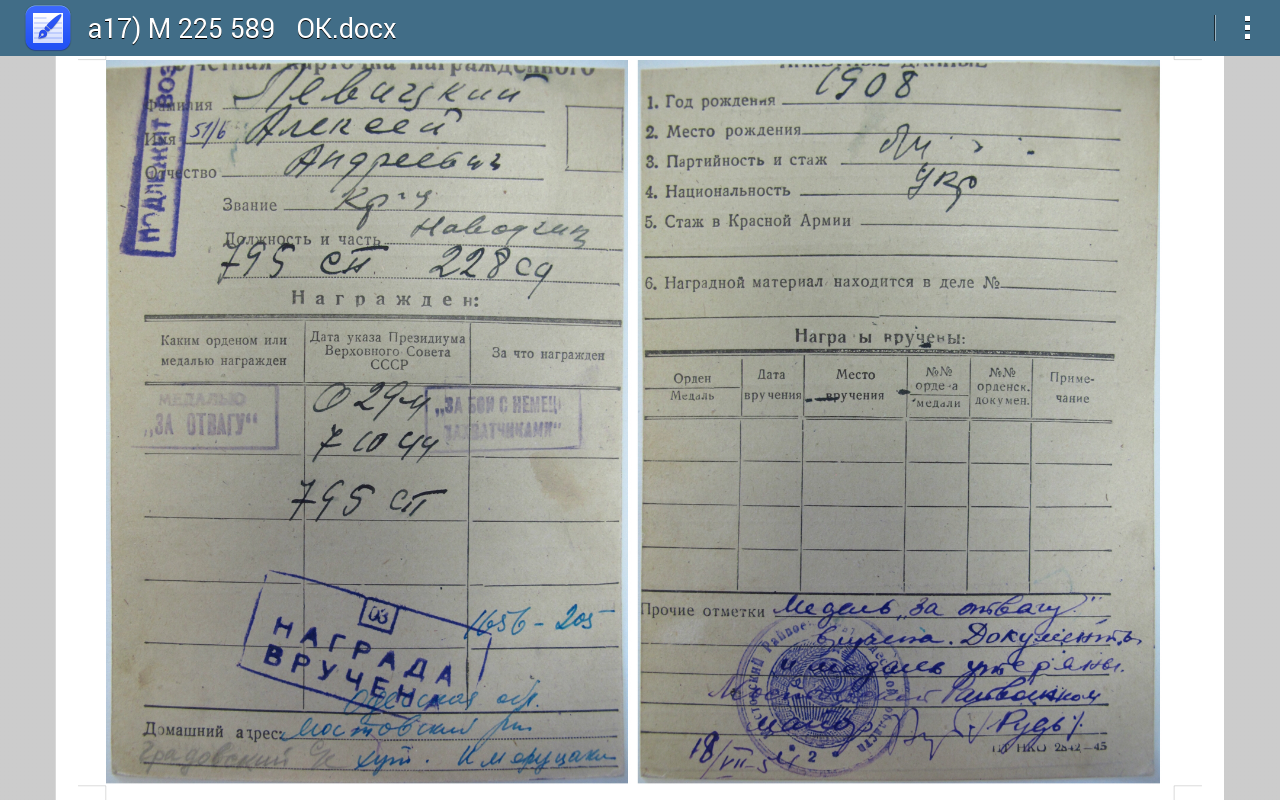 a17) М 225 589 ОК.docx
Учетная карточка награжденного
ПОДЛЕЖИТ ВОЗ
Фамилия Левицкий
Имя 51/Б Алексей
Отчество Андреевич
Звание Кр-ц
Должность и часть Наводчик
795 сп 228 сд
Награжден:
Каким орденом или медалью награжден
Дата указа Президиума Верховного Совета СССР
За что награжден
МЕДАЛЬЮ
„ЗА ОТВАГУ"
029м
7 10 44
„ЗА БОИ С НЕМЕЦ.
ЗАХВАТЧИКАМИ"
795 сп
03
НАГРАДА
ВРУЧЕНА
1656 - 205
Одесская обл.
Домашний адрес: Мостовский р-н
Градовский С/с хут.
АНКЕТНЫЕ ДАННЫЕ
1. Год рождения 1908
2. Место рождения
3. Партийность и стаж
4. Национальность укр
5. Стаж в Красной Армии
6. Наградной материал находится в деле №
Награды вручены:
Орден
Медаль
Дата вручения
Место вручения
№№ ордена
медали
№№ орденск. докумен.
Приме-
чание
Прочие отметки Медаль „За отвагу"
вручена. Документы
и медаль утеряны.
Райвоенком
/Рудь/
18/VII-5
2